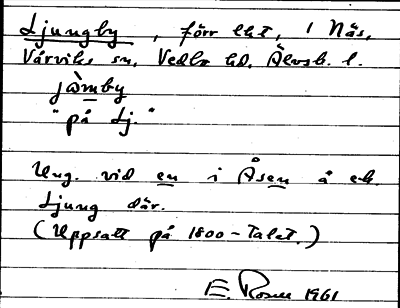 Ljungby, förr lht, i Näs,
Värviks sn, Vedbo hd, Älvsb. l.
jò̀mby
"på Lj."
Ung. vid en i Åsen å ek.
Ljung där.
(Uppsatt på 1800-talet.)
E. Rosell 1961